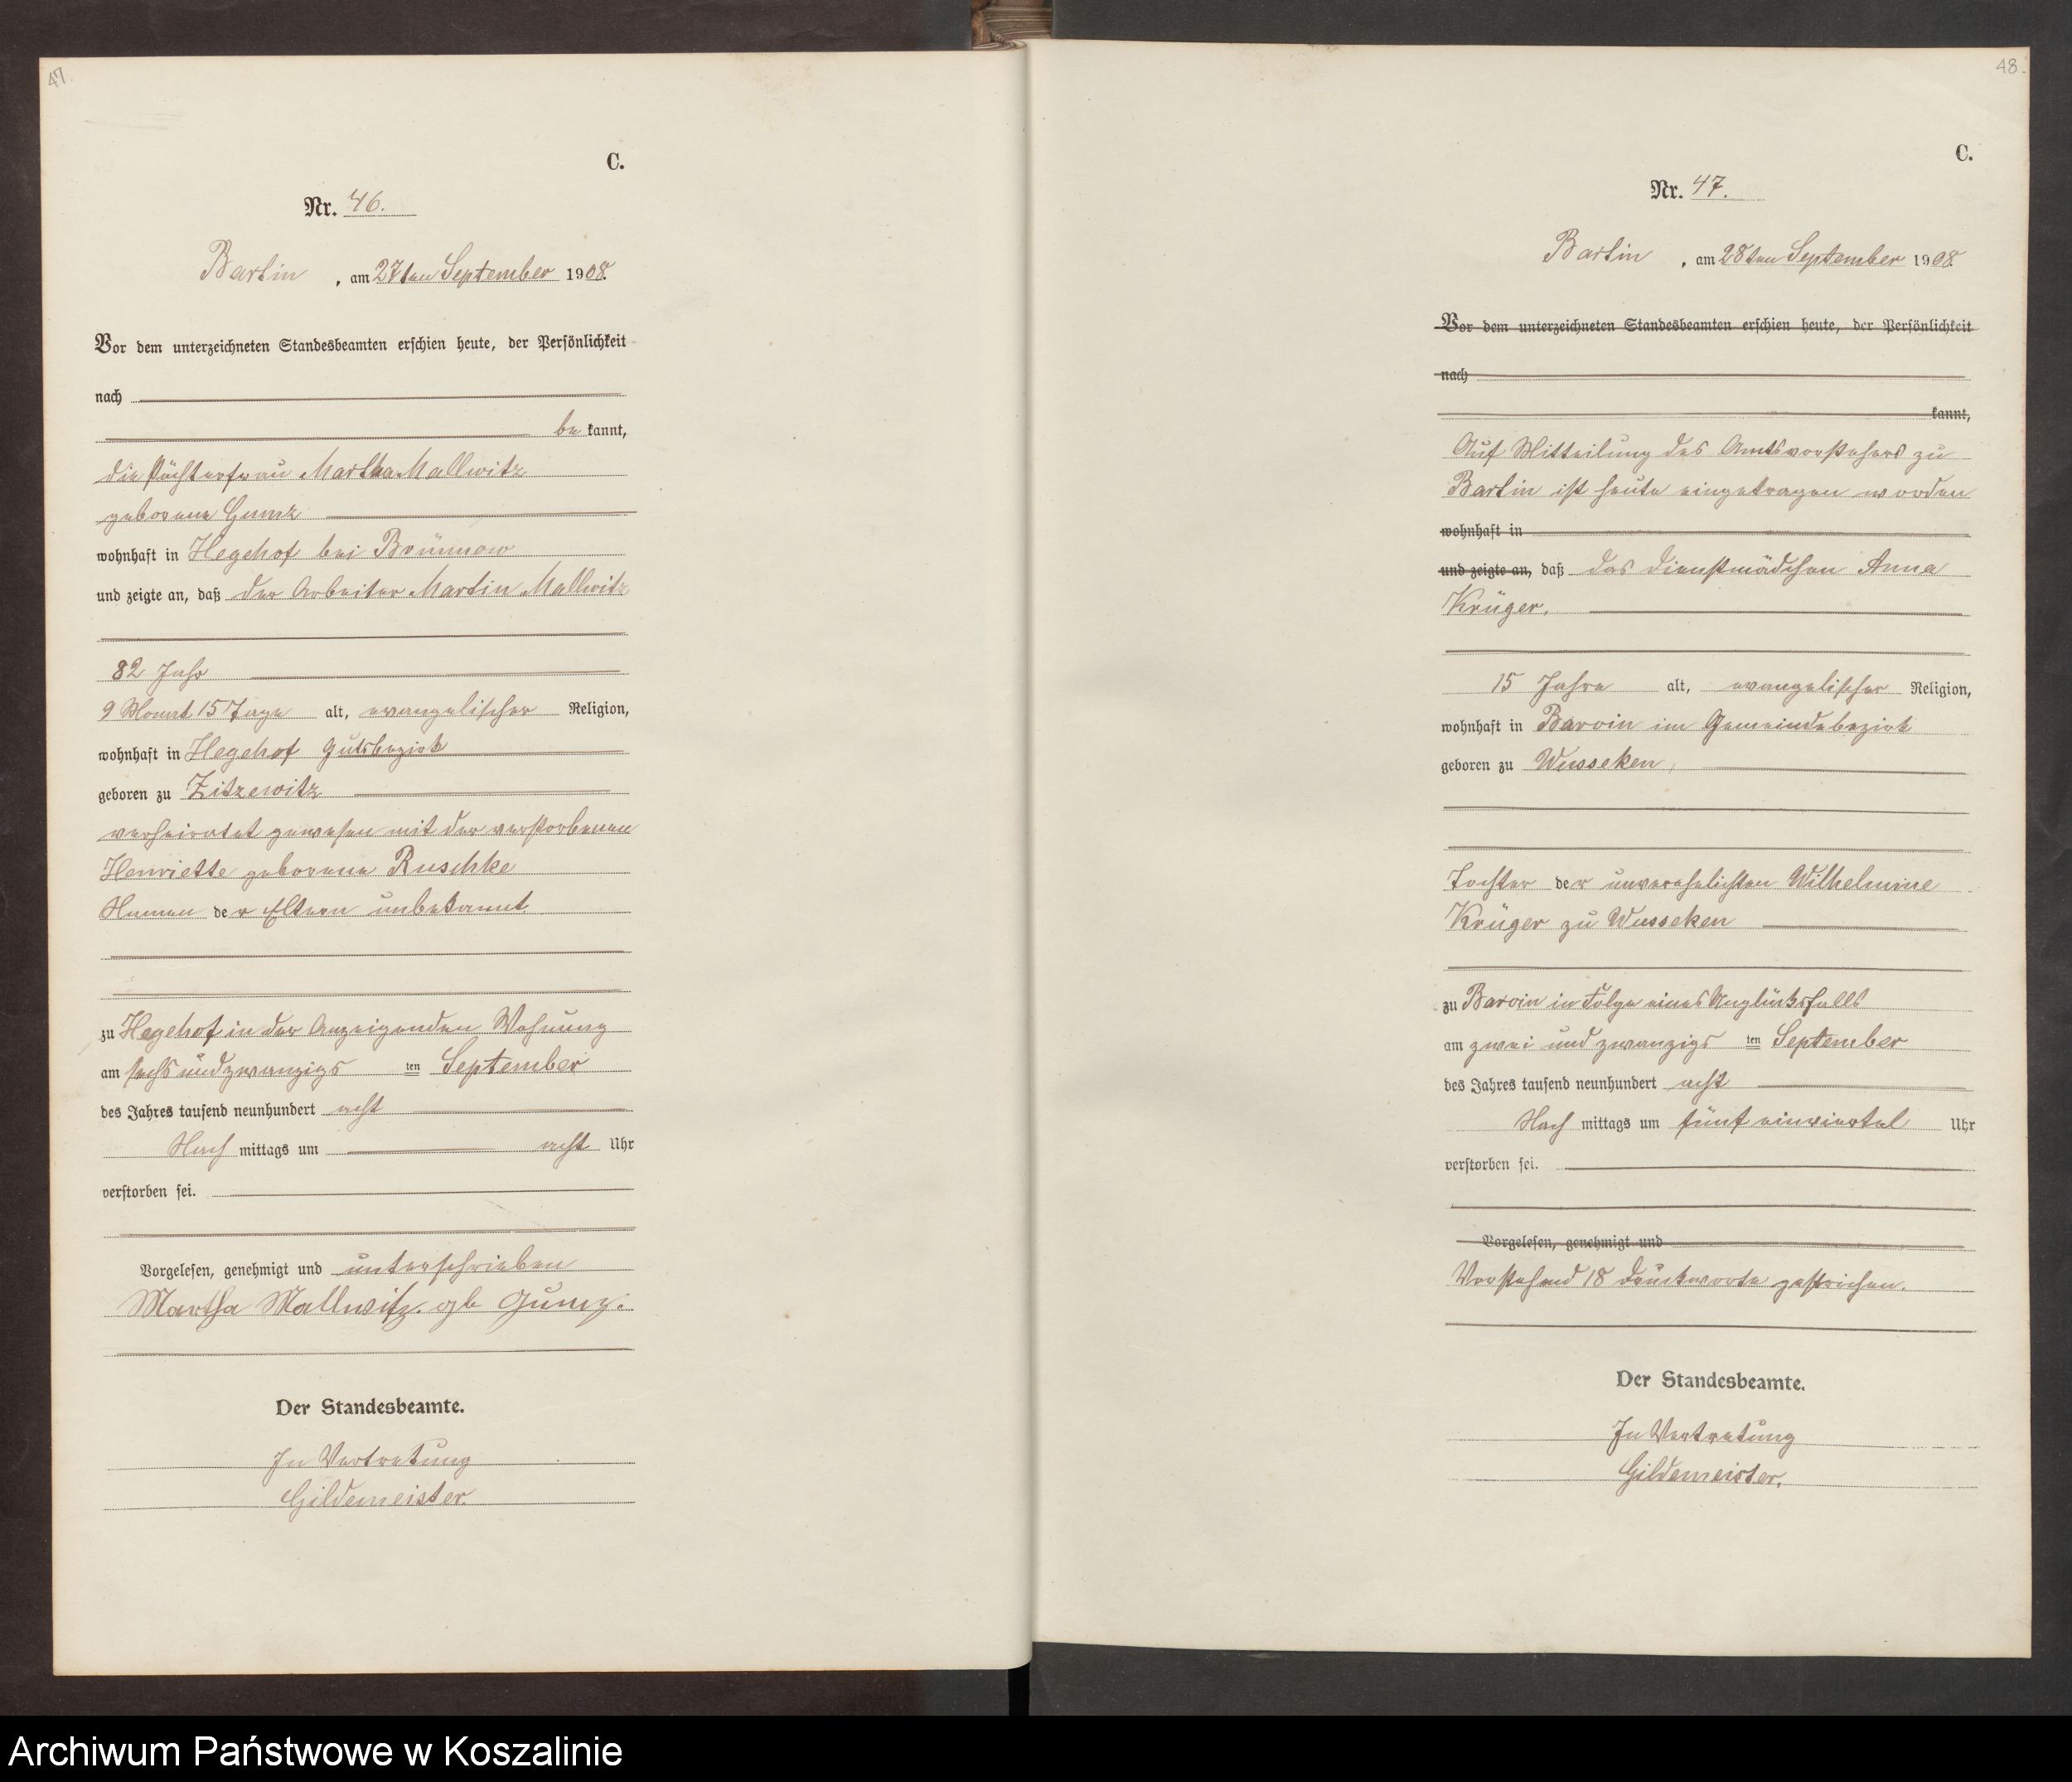 47.
C.
Nr. 46.
Bartin, am 27ten September 1908.
Vor dem unterzeichneten Standesbeamten erschien heute, der Persönlichkeit
nach
be kannt,
die Pächterfrau Martha Mallwitz
geborene Gumz
wohnhaft in Hegehof bei Brünnow
und zeigte an, daß der Arbeiter Martin Mallwitz
82 Jahr
9 Monat 15 Tage alt, evangelischer Religion,
wohnhaft in Hegehof Gutsbezirk
geboren zu Zitzewitz
verheiratet gewesen mit der verstorbenen
Henriette geborene Ruschke
Namen der Eltern unbekannt
zu Hegehof in der Anzeigenden Wohnung
am sechs und zwanzigs ten September
des Jahres tausend neunhundert acht
Nach mittags um acht Uhr
verstorben sei.
Vorgelesen, genehmigt und unterschrieben
Martha Mallwitz. gb Gumz.
Der Standesbeamte.
In Vertretung
Gildemeister.
48.
C.
Nr. 47.
Bartin, am 28ten September 1908.
Vor dem unterzeichneten Standesbeamten erschien heute, der Persönlichkeit
nach
kannt,
Auf Mitteilung des Amtsvorstehers zu
Bartin ist heute eingetragen worden
wohnhaft in
und zeigte an, daß das Dienstmädchen Anna
Krüger,
15 Jahre alt, evangelischer Religion,
wohnhaft in Barvin im Gemeindebezirk
geboren zu Wusseken,
Tochter der unverehelichten Wilhelmine
Krüger zu Wusseken
zu Barvin in Folge eines Unglücksfalls
am zwei und zwanzigs ten September
des Jahres tausend neunhundert acht
Nach mittags um fünf einviertel Uhr
verstorben sei.
Vorgelesen, genehmigt und
Vorstehend 18 Druckworte gestrichen.
Der Standesbeamte.
In Vertretung
Gildemeister.
Archiwum Państwowe w Koszalinie